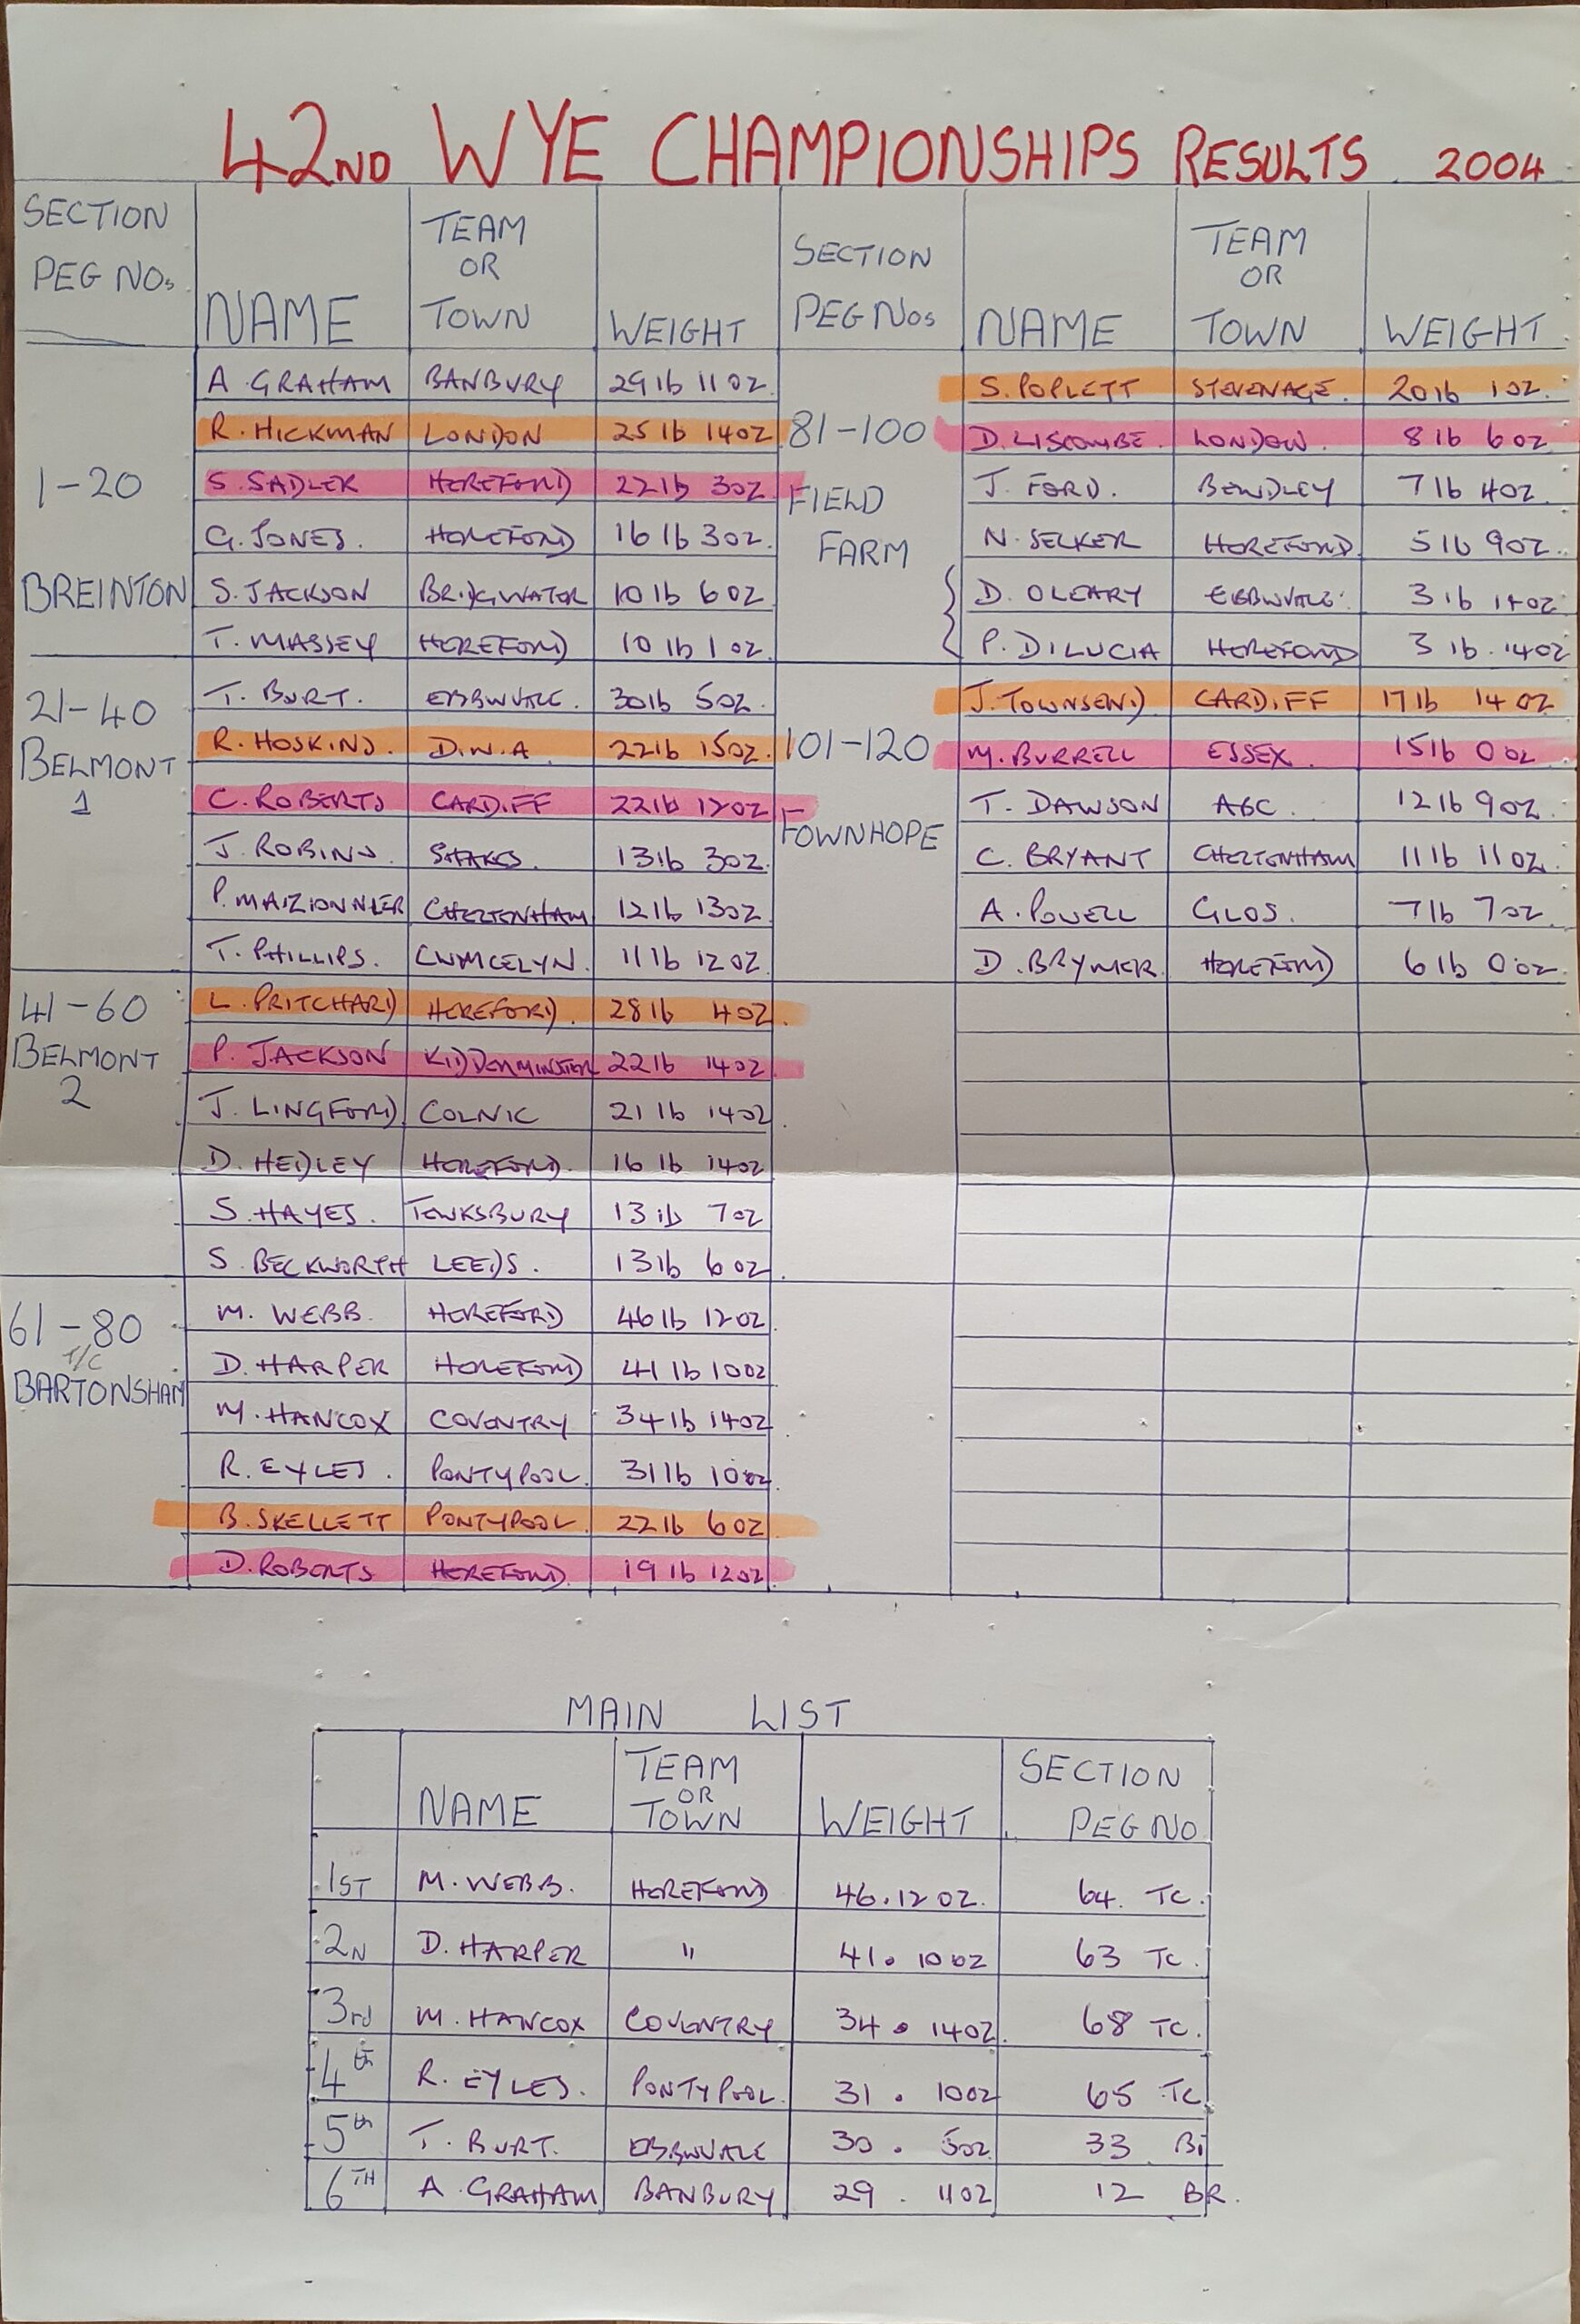 42ND WYE CHAMPIONSHIPS RESULTS 2004
SECTION PEG NOs NAME TEAM OR TOWN WEIGHT
1-20 BREINTON
A. GRAHAM BANBURY 29 lb 11 oz
R. HICKMAN LONDON 25 lb 14 oz
S. SADLER HEREFORD 22 lb 3 oz
G. JONES. HEREFORD 16 lb 3 oz.
S. JACKSON BRIDGWATER 10 lb 6 oz
T. MASSEY HEREFORD 10 lb 1 oz.
21-40 BELMONT 1
T. BURT. EBBWVALE. 30 lb 5 oz.
R. HOSKINS. D.W.A. 22 lb 15 oz.
C. ROBERTS CARDIFF 22 lb 12 oz
J. ROBINS. 13 lb 3 oz.
P. MAIZIONNIER CHELTENHAM 12 lb 13 oz
T. PHILLIPS. CWMCELYN. 11 lb 12 oz
41-60 BELMONT 2
L. PRITCHARD HEREFORD. 28 lb 4 oz.
P. JACKSON KIDDERMINSTER 22 lb 14 oz
J. LINGFORD COLNIC 21 lb 14 oz
D. HEDLEY HEREFORD. 16 lb 14 oz
S. HAYES. TEWKSBURY 13 lb 7 oz
S. BECKWORTH LEEDS. 13 lb 6 oz
61-80 T/C BARTONSHAM
M. WEBB. HEREFORD 46 lb 12 oz
D. HARPER HEREFORD 41 lb 10 oz
M. HANCOX COVENTRY 34 lb 14 oz
R. EYLES. PONTYPOOL. 31 lb 10 oz
B. SKELLETT PONTYPOOL 22 lb 6 oz
D. ROBERTS HEREFORD. 19 lb 12 oz
SECTION PEG NOs NAME TEAM OR TOWN WEIGHT
81-100 FIELD FARM
S. POPLETT STEVENAGE. 20 lb 1 oz.
D. LISCOMBE. LONDON. 8 lb 6 oz
J. FORD. BEWDLEY 7 lb 4 oz.
N. SELKER HEREFORD 5 lb 9 oz.
D. OLEARY EBBWVALE 3 lb 14 oz
P. DILUCIA HEREFORD 3 lb. 14 oz
101-120 FOWNHOPE
J. TOWNSEND CARDIFF 17 lb 14 oz
M. BURRELL ESSEX. 15 lb 0 oz
T. DAWSON AGC. 12 lb 9 oz
C. BRYANT CHELTENHAM 11 lb 11 oz.
A. POWELL GLOS. 7 lb 7 oz
D. BRYMER. HEREFORD 6 lb 0 oz
MAIN LIST
NAME TEAM OR TOWN WEIGHT SECTION PEG NO
1ST M. WEBB. HEREFORD 46.12 oz. 64. TC.
2N D. HARPER " 41. 10 oz 63 TC.
3rd M. HANCOX COVENTRY 34. 14 oz. 68 TC.
4th R. EYLES. PONTYPOOL. 31. 10 oz 65 TC
5th T. BURT. EBBWVALE 30. 5 oz 33 B1
6TH A. GRAHAM BANBURY 29. 11 oz 12 BR.